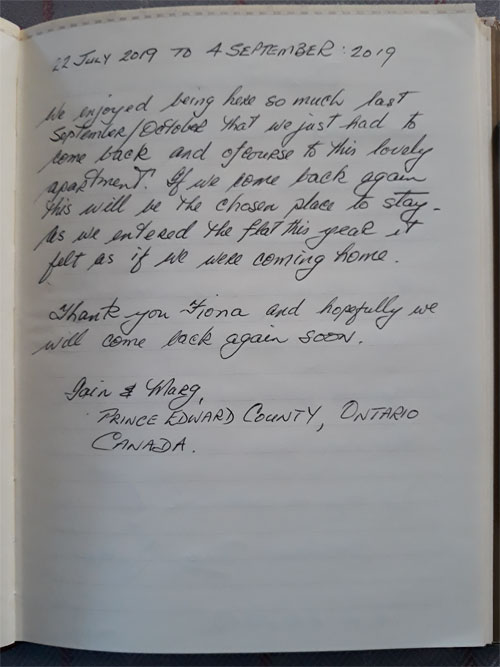 22 JULY 2019 TO 4 SEPTEMBER : 2019
We enjoyed being here so much last
September/October that we just had to
come back and ofcourse to this lovely
apartment. If we come back again
this will be the chosen place to stay -
as we entered the flat this year it
felt as if we were coming home.
Thank you Fiona and hopefully we
will come back again soon.
Iain & Marg,
PRINCE EDWARD COUNTY, ONTARIO
CANADA.